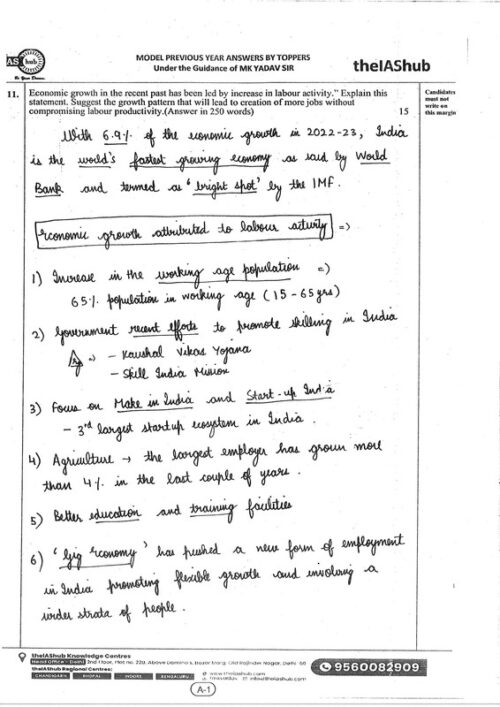 AS hub
MODEL PREVIOUS YEAR ANSWERS BY TOPPERS
Under the Guidance of MK YADAV SIR
theIAShub
11. Economic growth in the recent past has been led by increase in labour activity." Explain this
statement. Suggest the growth pattern that will lead to creation of more jobs without
compromising labour productivity.(Answer in 250 words) 15
Candidates
must not
write on
this margin
With 6.9% of the economic growth in 2022-23, India
is the world's fastest growing economy as said by World
Bank and termed as 'bright spot' by the IMF.
Economic growth attributed to labour activity =>
1) Increase in the working age population =>
65% population in working age (15-65 yrs)
2) Government recent efforts to promote skilling in India
- Kaushal Vikas Yojana
- Skill India Mission
3) Focus on Make in India and Start-up India
- 3rd largest startup ecosystem in India.
4) Agriculture → the largest employer has grown more
than 4% in the last couple of years.
5) Better education and training facilities
6) 'Gig economy' has pushed a new form of employment
in India promoting flexible growth and involving a
wider strata of people.
theIAShub Knowledge Centres
Head Office - Delhi 2nd Floor, Plot no. 22B, Above Domino's, Bazar Marg, Old Rajinder Nagar, Delhi 60
theIAShub Regional Centres:
CHANDIGARH BHOPAL INDORE BENGALURU
www.theiashub.com
info@theiashub.com
9560082909
A-1